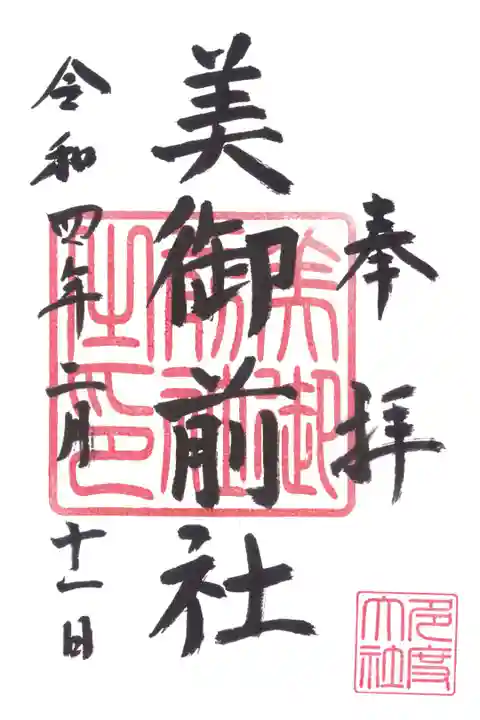 奉拝
美御前社
令和四年二月十一日
美御前社之印
多度大社